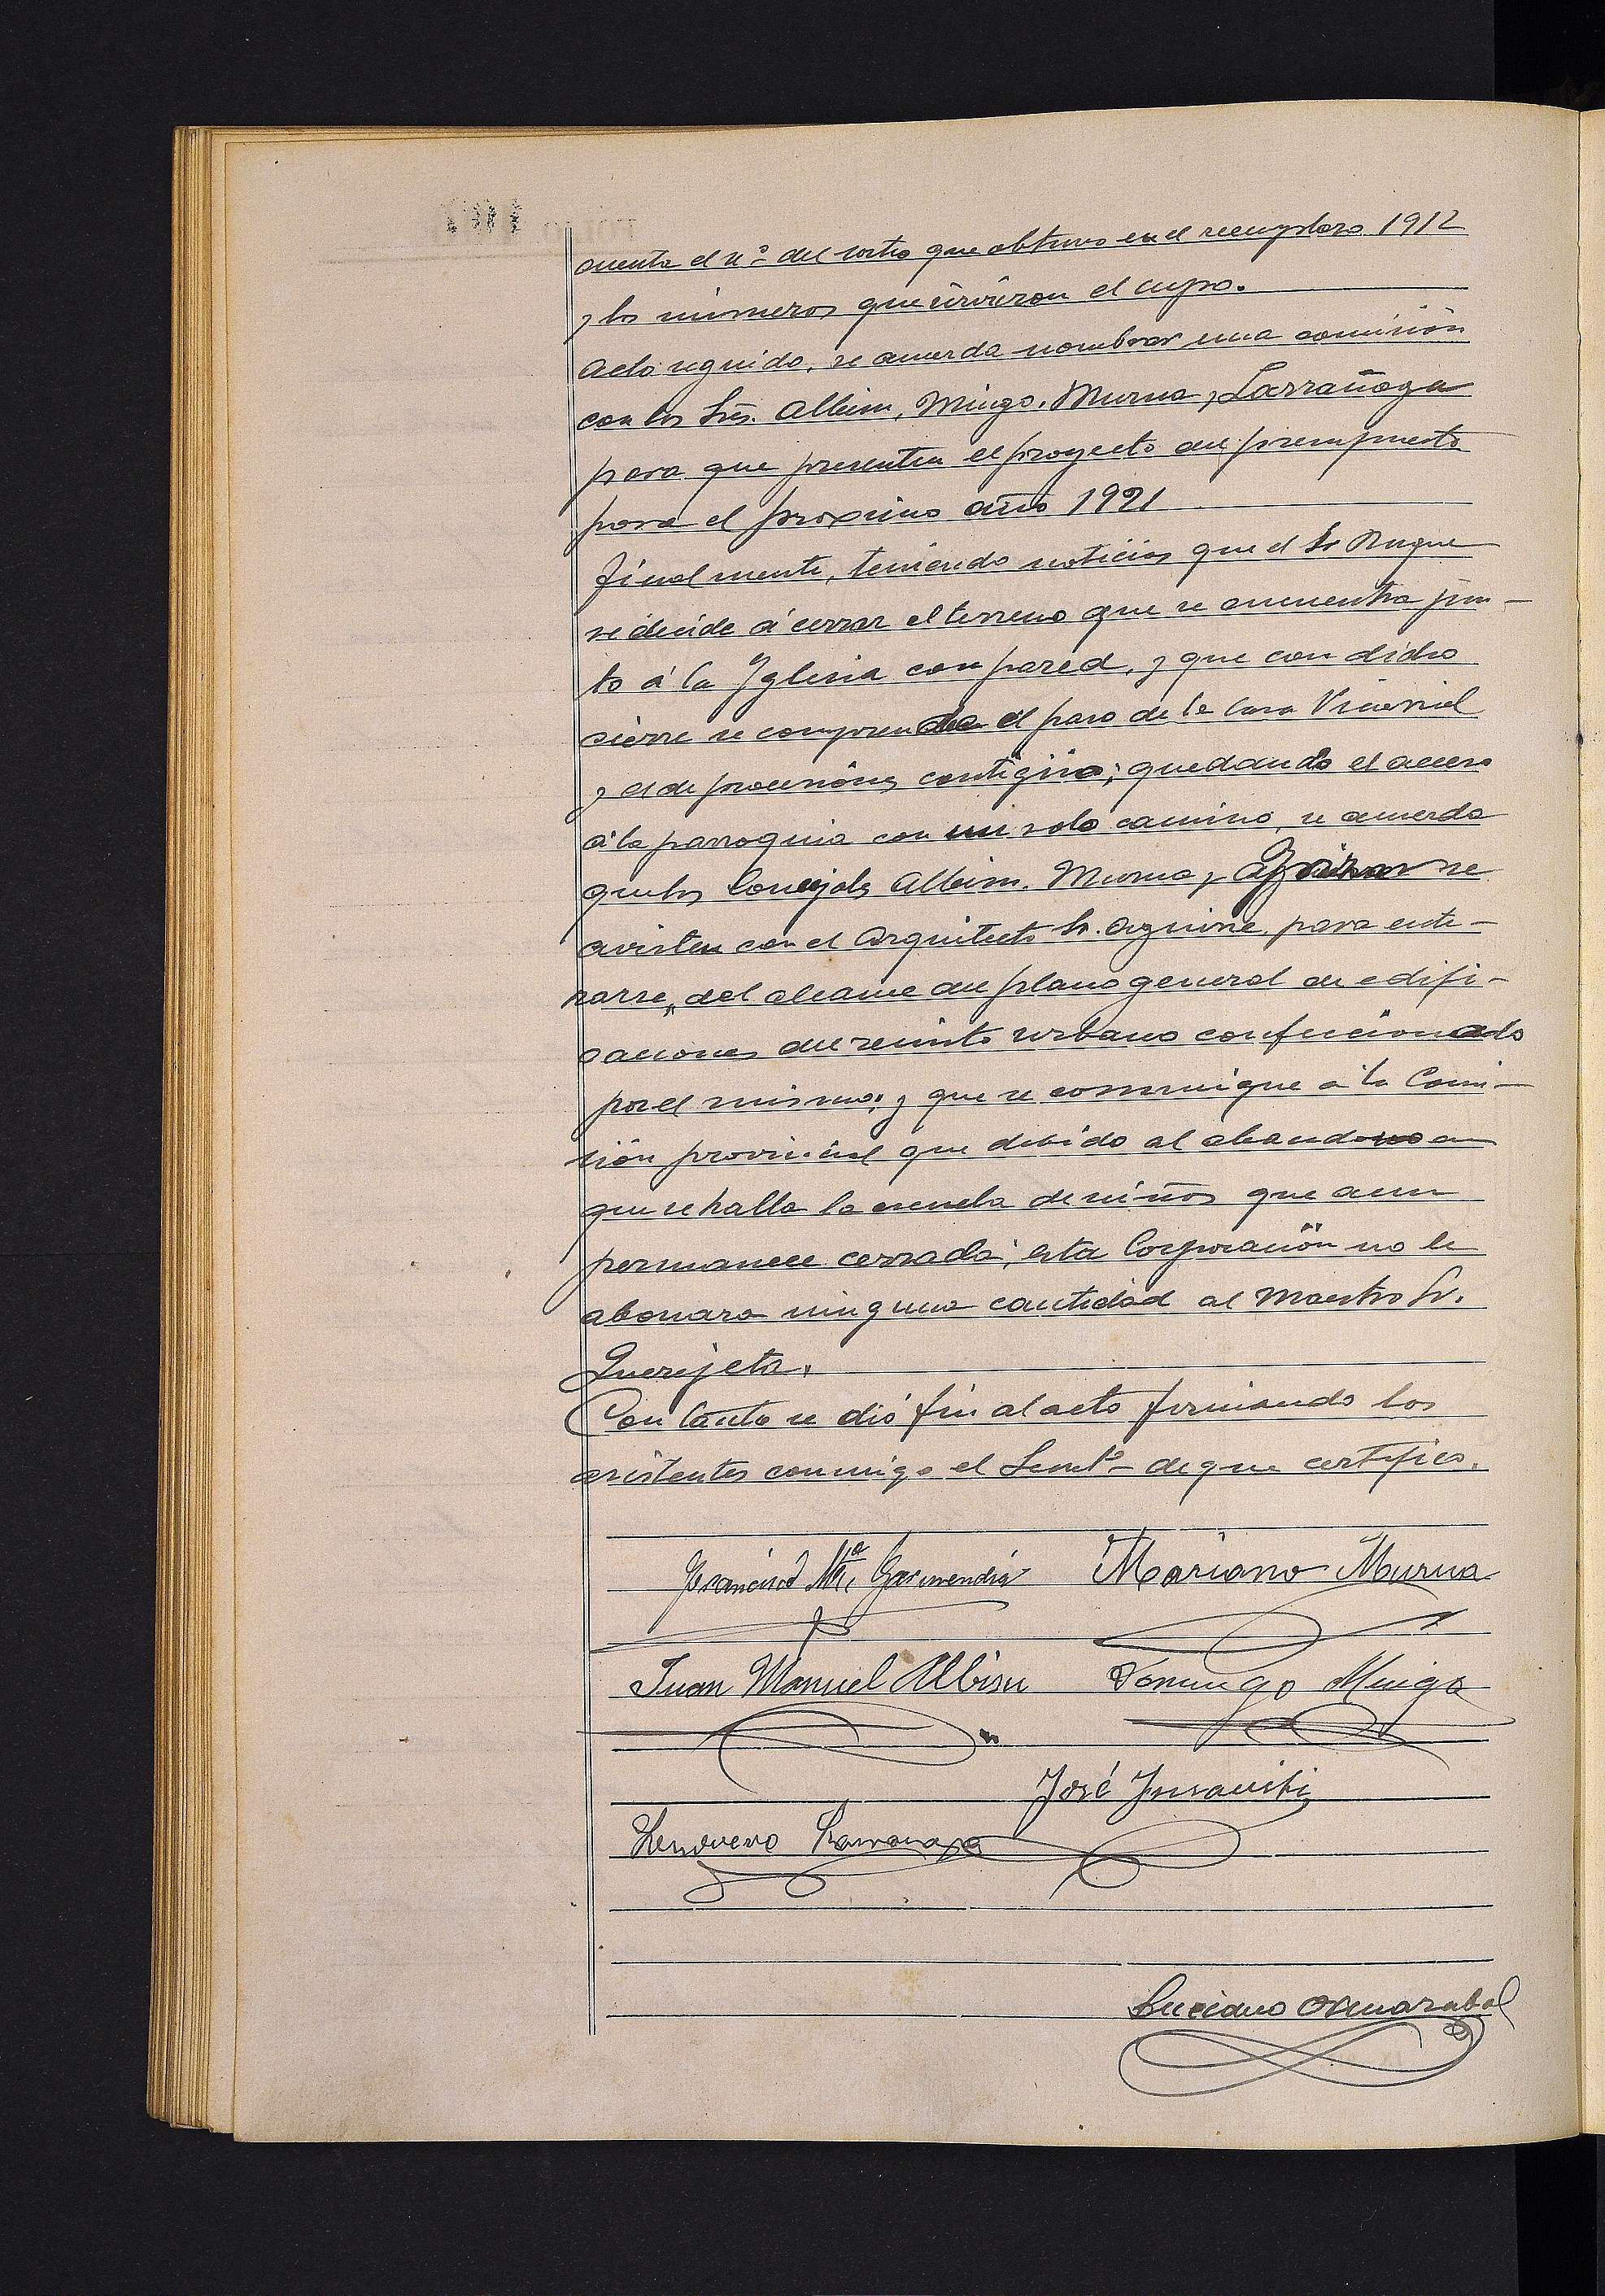 cuenta el nº del sorteo que obtuvo en el reemplazo 1912
y los números que sirvieron el cupo.
Acto seguido, se acuerda nombrar una comisión
con los Srs. Albisu, Mugo, Murua y Larrañaga
para que presenten el proyecto del presupuesto
para el próximo año 1921
Finalmente, teniendo noticias que el Sr Duque
se decide á cerrar el terreno que se encuentra jun-
to á la Yglesia con pared, y que con dicho
cierre se comprenda el paso de la Casa Vicarial
y el de procesiones contiguo; quedando el acceso
á la parroquia con un solo camino, se acuerda
que los Concejales Albisu, Murua y se
avisten con el Arquitecto Sr. Aguirre, para ente-
rarse, del alcance del plano general de edifi-
caciones del recinto urbano confeccionado
por el mismo; y que se comunique á la Comi-
sión provincial que debido al abandono en
que se halla la escuela de niños que aun
permanece cerrada; esta Corporación no le
abonara ninguna cantidad al Maestro Sr.
Querejeta.
Con tanto se dió fin al acto firmando los
asistentes conmigo el Secretº de que certifico.
Francisco Mª Garmendia Mariano Murua
Juan Manuel Albisu Domingo Muiga
José Ynsausti
Larranaga
Luciano Amarabal